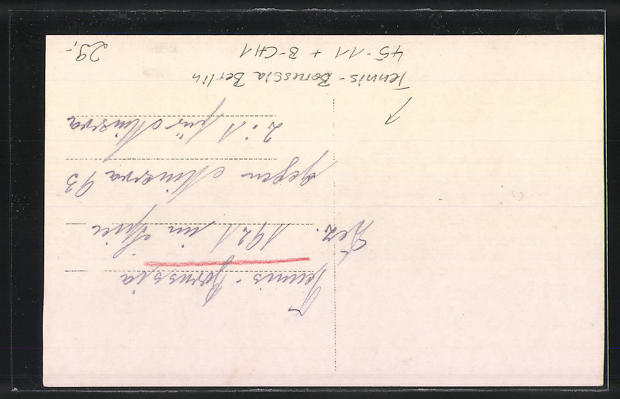 Tennis-Borussia
Dez. 1921 im Spiel
gegen Minerva 93
2:1 für Minerva
Tennis-Borussia Berlin
45-11 + B-CH1
29,-